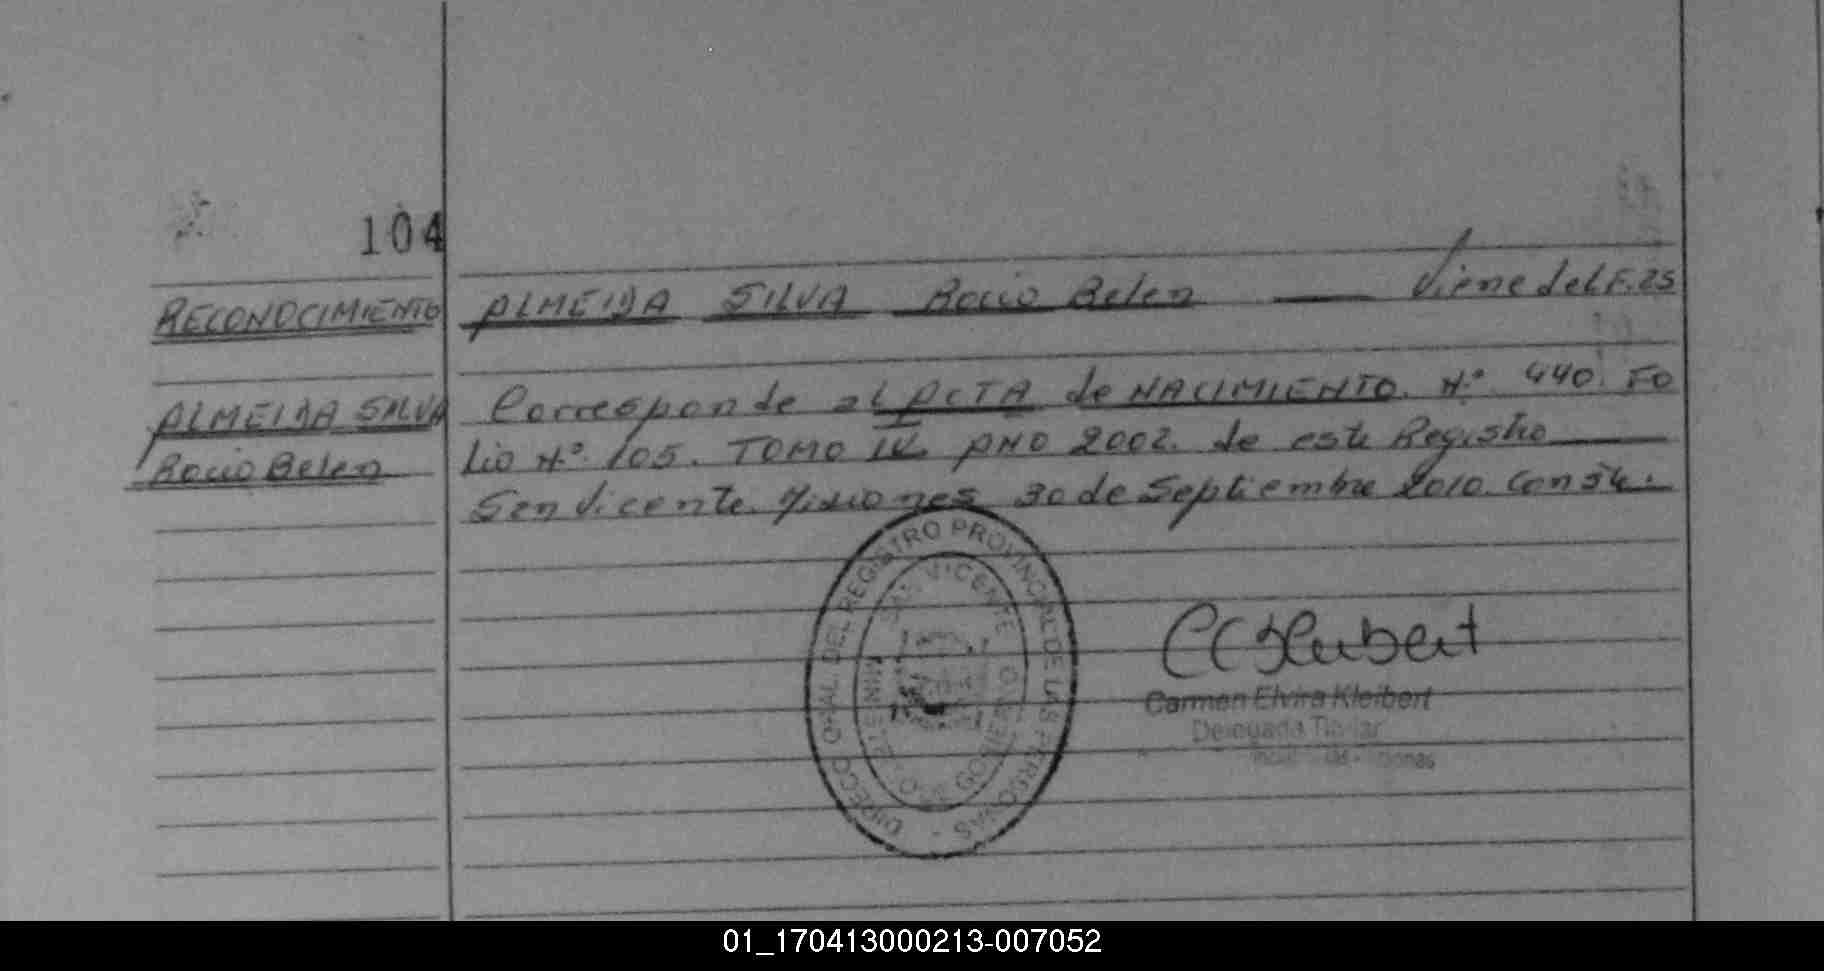 104
RECONOCIMIENTO
ALMEIDA SILVA
Rocio Belen
ALMEIDA SILVA Rocio Belen — Viene del F. 25
Corresponde al ACTA de NACIMIENTO. N.º 440. FO
lio N.º 105. TOMO IV. AÑO 2002. de este Registro
San Vicente. Misiones 30 de Septiembre 2010. Conste.
DIRECC. GRAL. DEL REGISTRO PROVINCIAL DE LAS PERSONAS -
SAN VICENTE
GOBIERNO
Carmen Elvira Kleibert
Delegada Titular
01_170413000213-007052